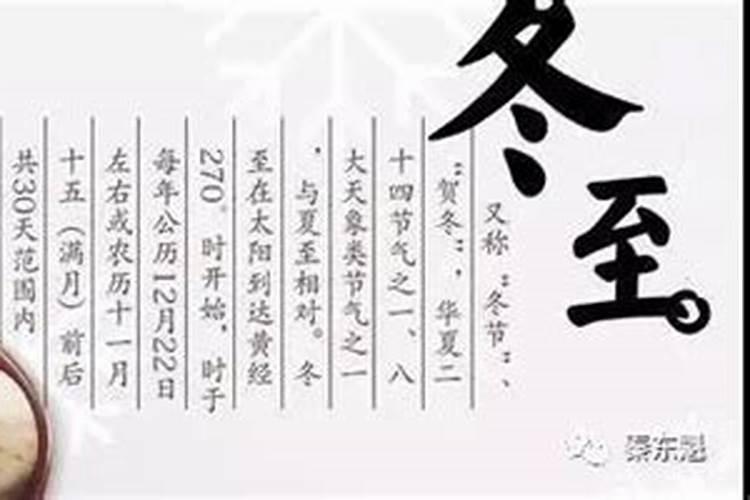 冬至。
又称“冬节”、
“贺冬”，华夏二
十四节气之一、八
大天象类节气之一
，与夏至相对。冬
至在太阳到达黄经
270°时开始，时于
每年公历12月22日
左右或农历十一月
十五（满月）前后
共30天范围内
梁东魁